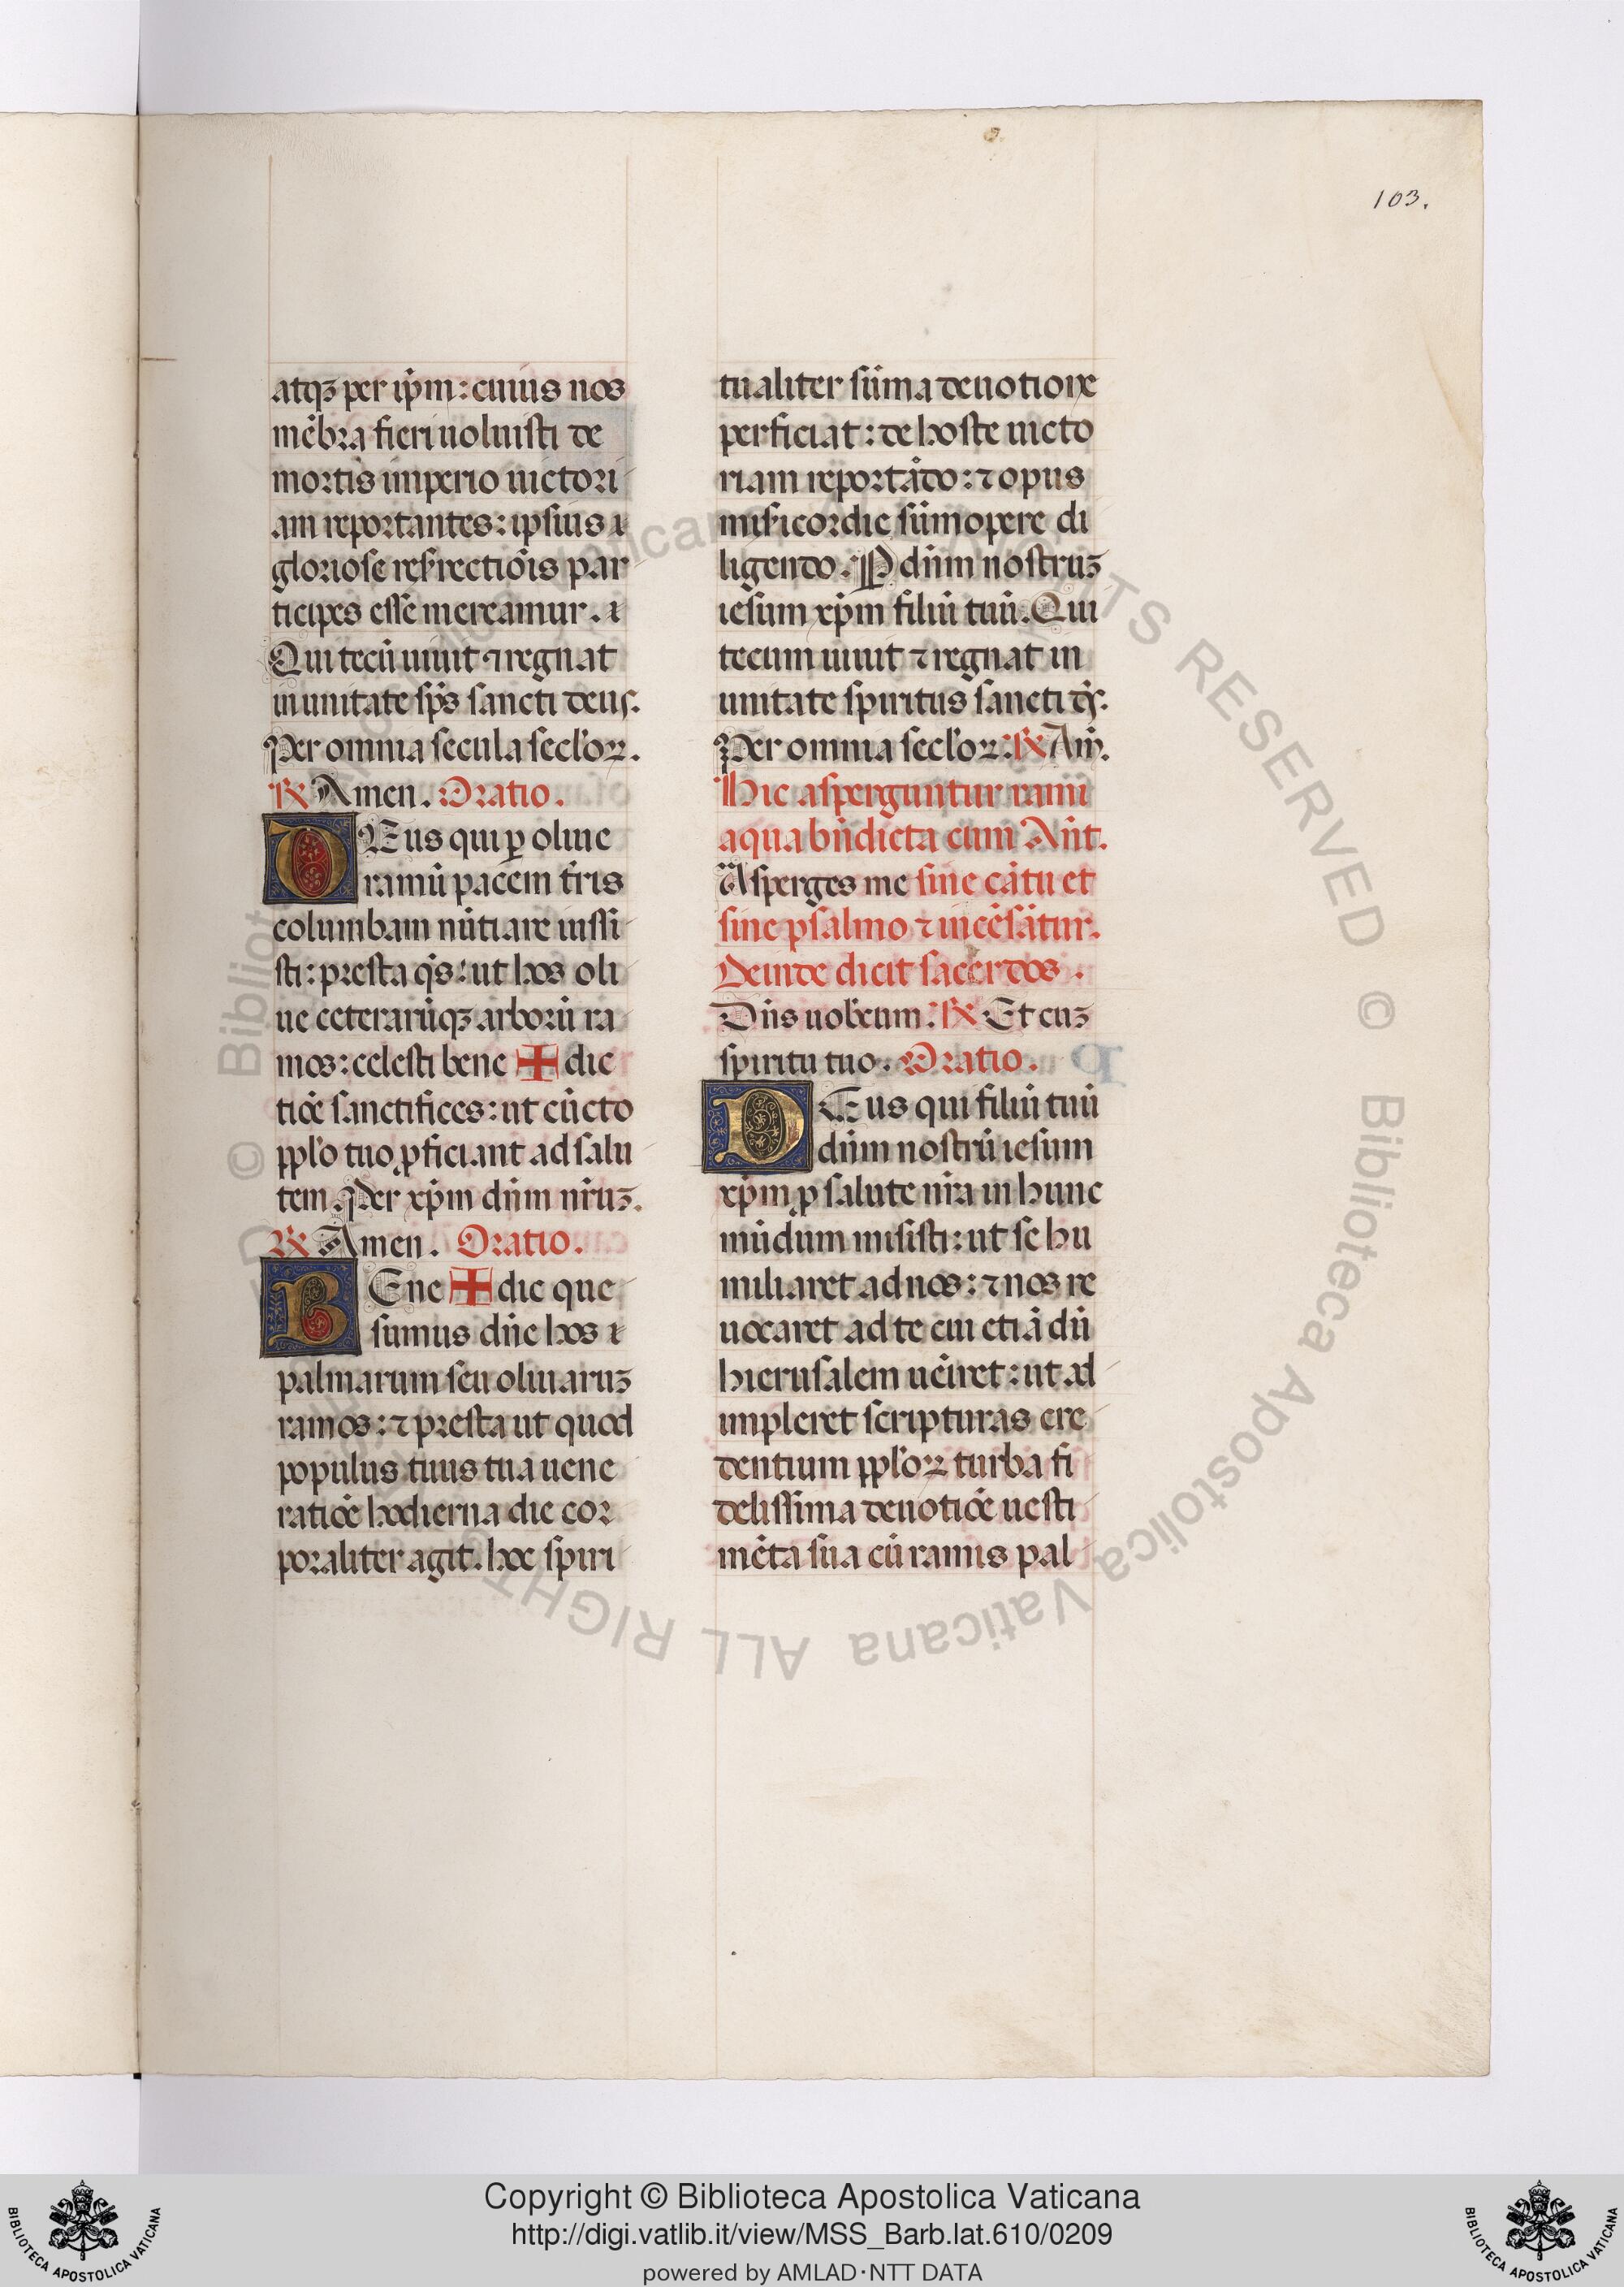 103.
atqꝫ per ip̄m: cuius nos
mēbra fieri uoluisti de
mortis imperio uictori
am reportantes: ipsius ı
gloriose resr̄rectiōis par
ticipes esse mereamur. ı
Qui tecū uiuit ⁊ regnat
in unitate sp̄s sancti deus.
Per omnia secula secl'oꝝ.
℞ Amen. Oratio.
DEus qui ꝑ oliue
ramū pacem t̄ris
columbam nūtiare iussi
sti: presta q̄s: ut hos oli
ue ceterarūqꝫ arborū ra
mos: celesti bene ✚ dic
tiōe sanctifices: ut cūcto
ppl'o tuo ꝓficiant ad salu
tem. Per xp̄m dn̄m nr̄uꝫ.
℞ Amen. Oratio.
BEne ✚ dic que
sumus dn̄e hos ı
palmarum seu oliuaruꝫ
ramos: ⁊ presta ut quod
populus tuus tua uene
ratiōe hodierna die cor
poraliter agit. hoc spiri
tualiter sūma deuotione
perficiat: de hoste uicto
riam reportādo: ⁊ opus
misr̄icordie sūmopere di
ligendo. P dn̄m nostruꝫ
iesum xp̄m filiū tuū. Qui
tecum uiuit ⁊ regnat in
unitate spiritus sancti d̄s.
Per omnia secl'oꝝ. ℞ Am̄.
Hic asperguntur rami
aqua bn̄dicta cum An̄t.
Asperges me sine cātu et
sine psalmo ⁊ incēsātur.
Deinde dicit sacerdos.
Dn̄s uob̄cum. ℞ Et cuꝫ
spiritu tuo. Oratio.
DEus qui filiū tuū
dn̄m nostrū iesum
xp̄m ꝓ salute nr̄a in hunc
mūdum misisti: ut se hu
miliaret ad nos: ⁊ nos re
uocaret ad te cui etiā dū
hierusalem uēiret: ut ad
impleret scripturas cre
dentium ppl'oꝝ turba fi
delissima deuotiōe uesti
mēta sua cū ramis pal
Copyright © Biblioteca Apostolica Vaticana
http://digi.vatlib.it/view/MSS_Barb.lat.610/0209
powered by AMLAD·NTT DATA
BIBLIOTECA APOSTOLICA VATICANA
BIBLIOTECA APOSTOLICA VATICANA
© Biblioteca Apostolica Vaticana ALL RIGHTS RESERVED